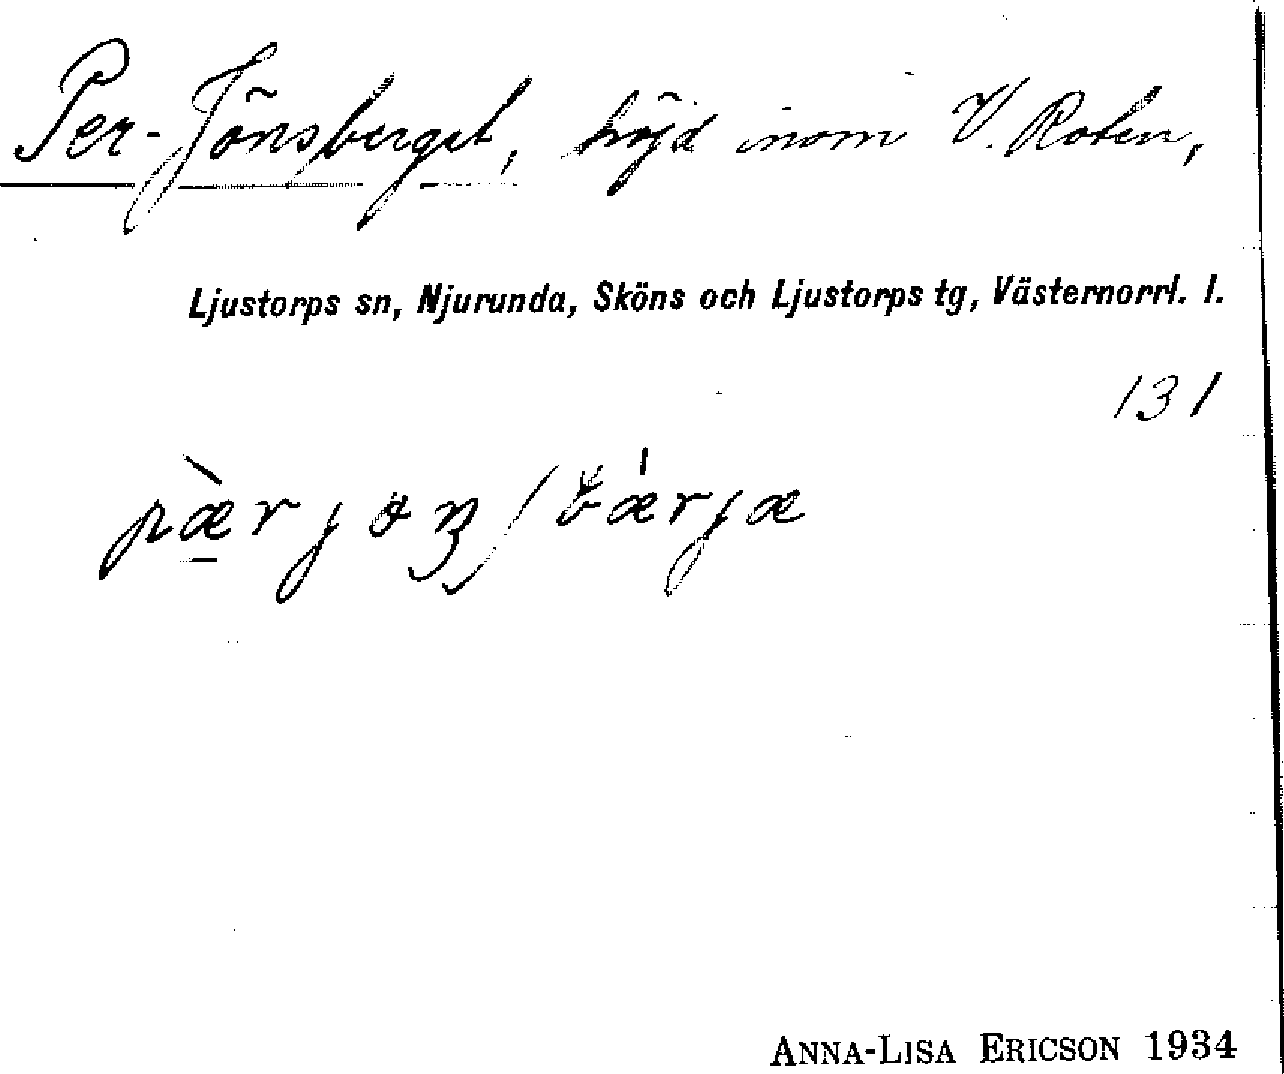 Per-Jönsberget, höjd inom V. Roten,
Ljustorps sn, Njurunda, Sköns och Ljustorps tg, Västernorrl. l.
131
ANNA-LISA ERICSON 1934